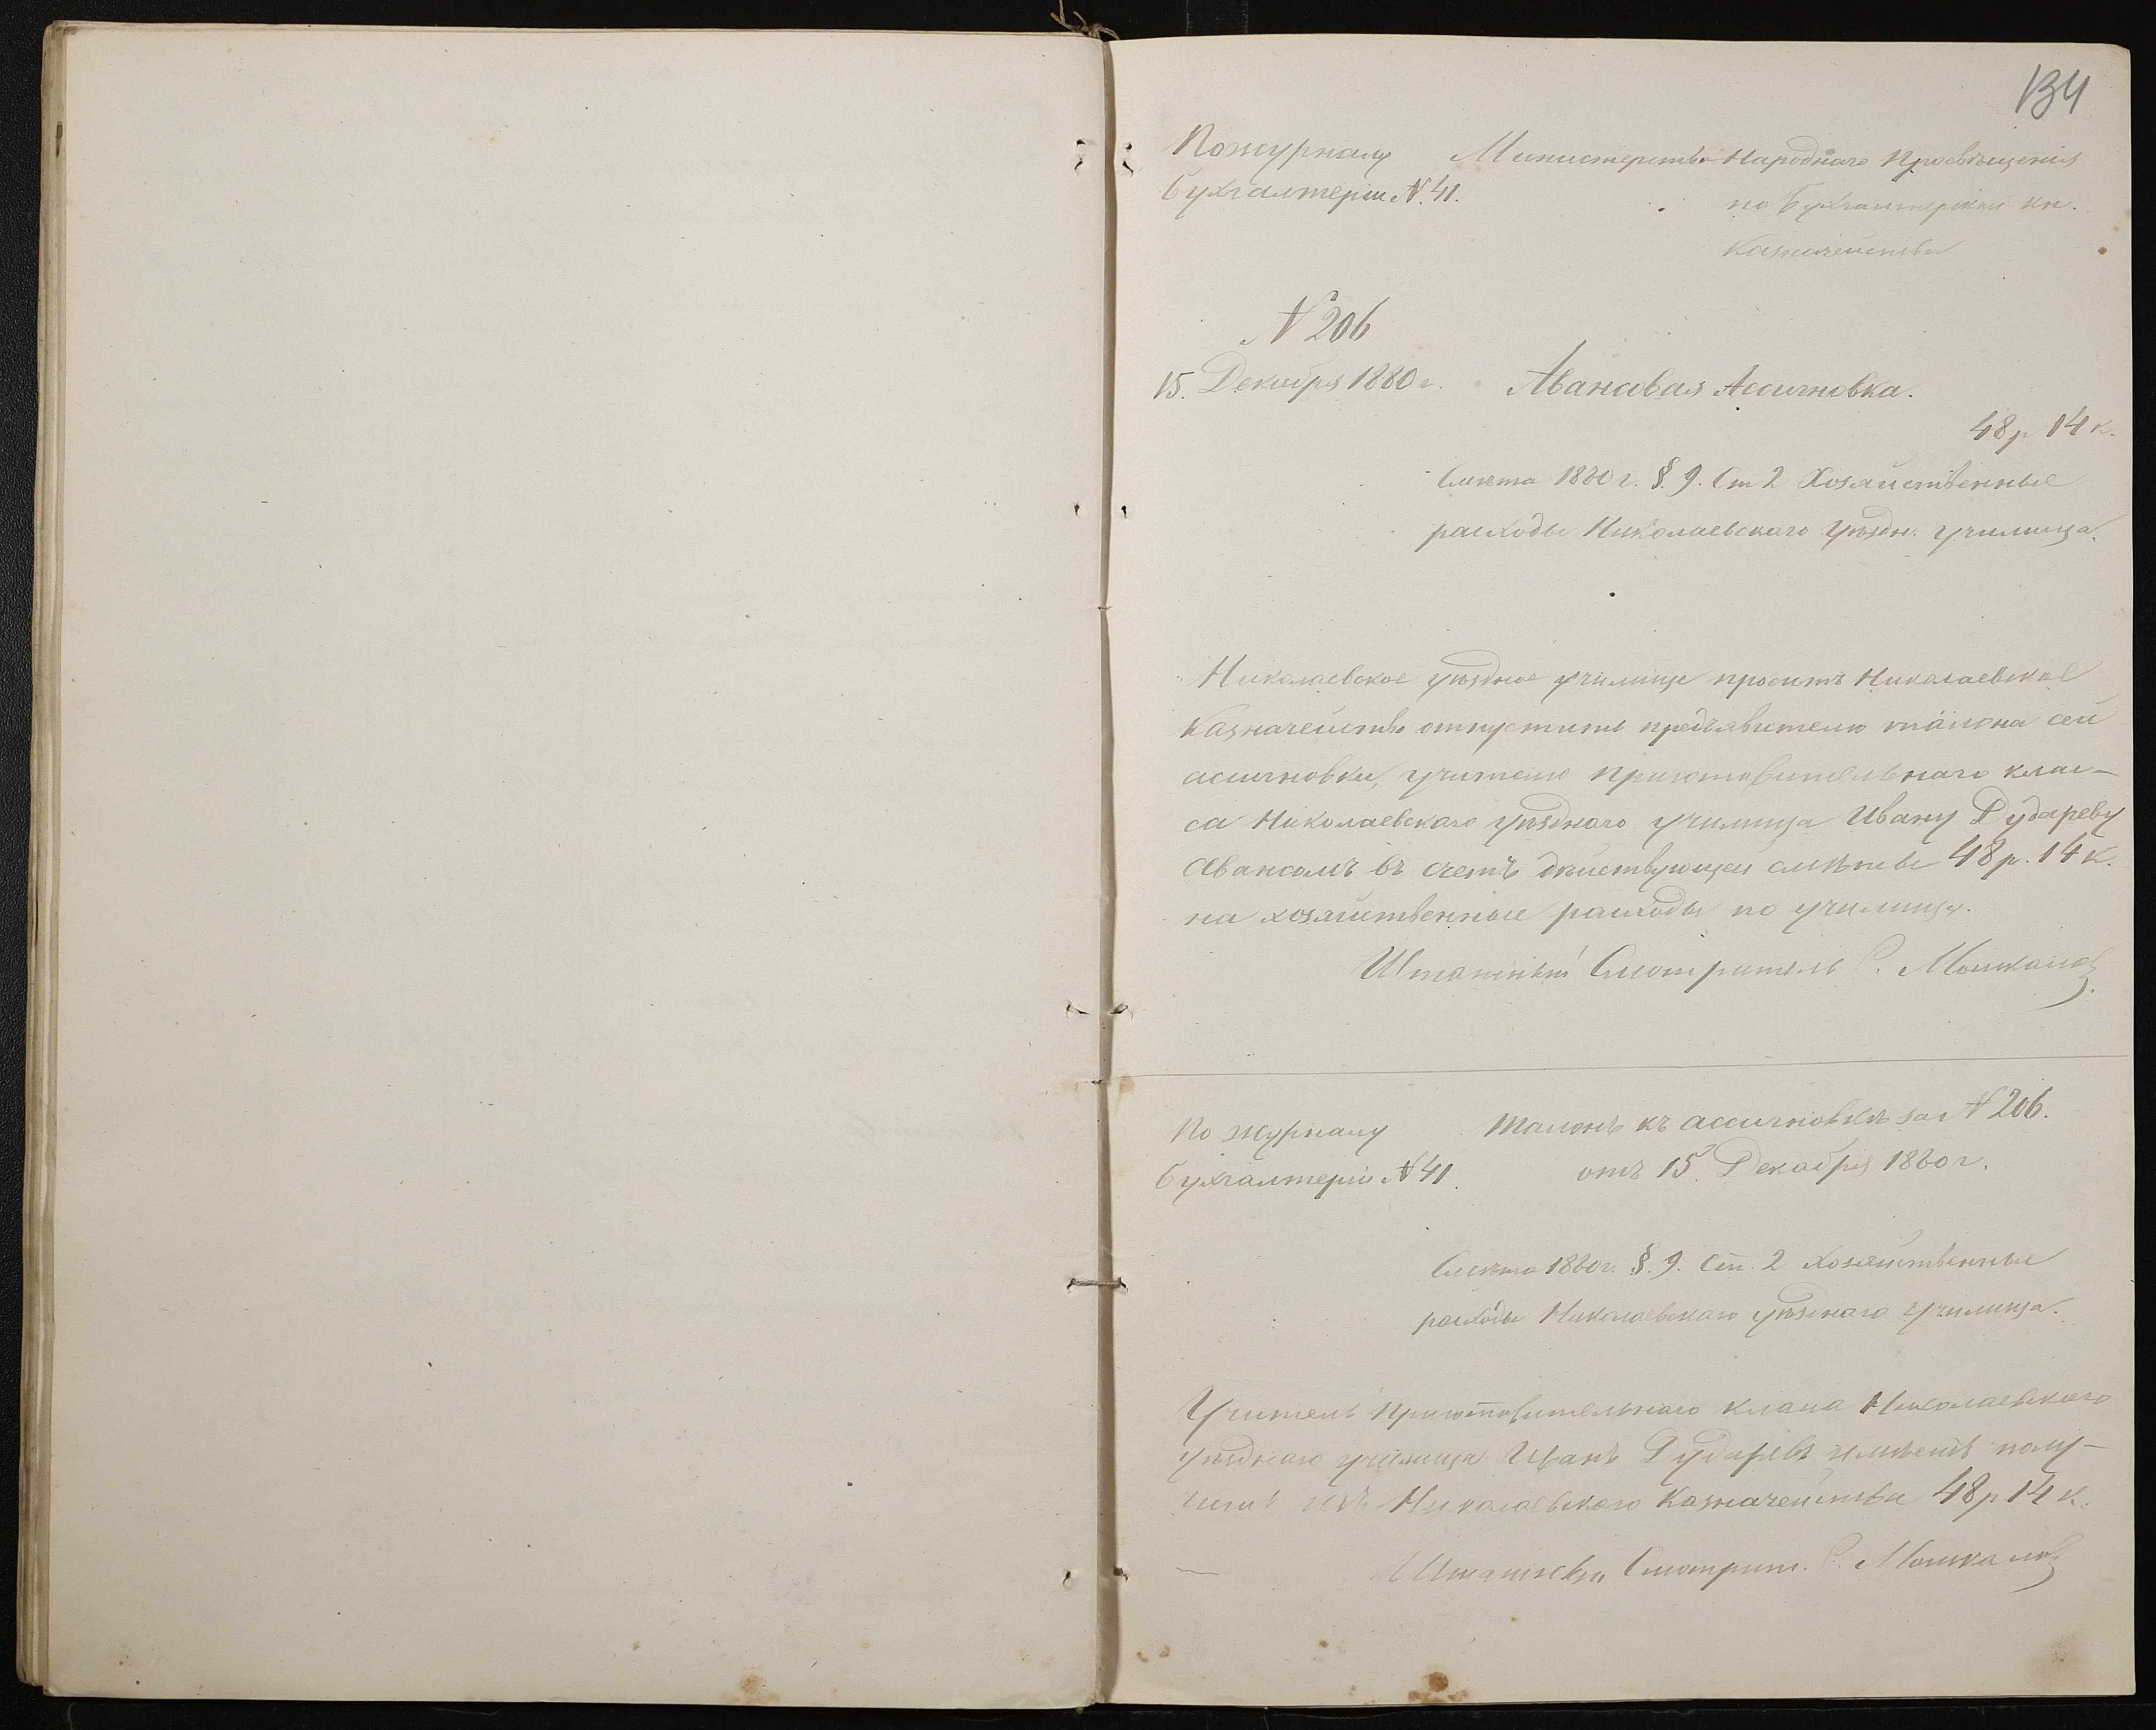 134
По журналу Министерство Народнаго Просвѣщенія
бухгалтеріи № 41.
по бухгалтерской кн.
Казначейства
№ 206
15. Декабря 1880 г. Авансовая Ассигновка.
48 р 14 к.
Смѣта 1880 г. §. 9. Ст 2 Хозяйственные
расходы Николаевскаго Уѣздн. Училища.
Николаевское уѣздное училище проситъ Николаевское
Казначейство отпустить предъявителю талона сей
ассигновки, учителю приготовительнаго клас-
са Николаевскаго уѣзднаго училища Ивану Дудареву
Авансомъ въ счетъ дѣйствующей смѣты 48 р. 14 к.
на хозяйственные расходы по училищу.
Штатный Смотритель С. Мошкаловъ
По журналу Талонъ къ ассигновкѣ за № 206.
Бухгалтеріи № 41. отъ 15 Декабря 1880 г.
Смѣта 1880 г. §. 9. Ст. 2 Хозяйственные
расходы Николаевскаго уѣзднаго Училища.
Учитель приготовительнаго класса Николаевскаго
уѣзднаго училища Иванъ Дударевъ имѣетъ полу-
чить изъ Николаевскаго Казначейства 48 р 14 к.
Штатный Смотрит. С. Мошкаловъ